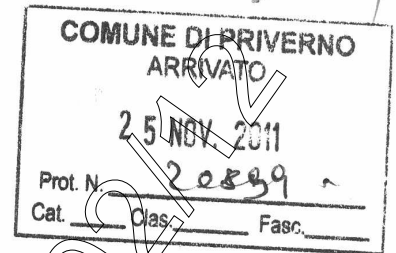 COMUNE DI PRIVERNO
ARRIVATO
25 NOV. 2011
Prot. N. 20899
Cat. Clas. Fasc.